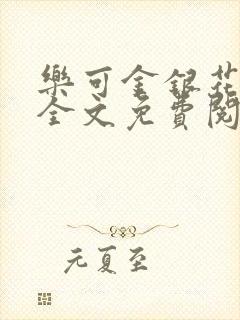 樂可金銀花
全文免費閱
元夏至